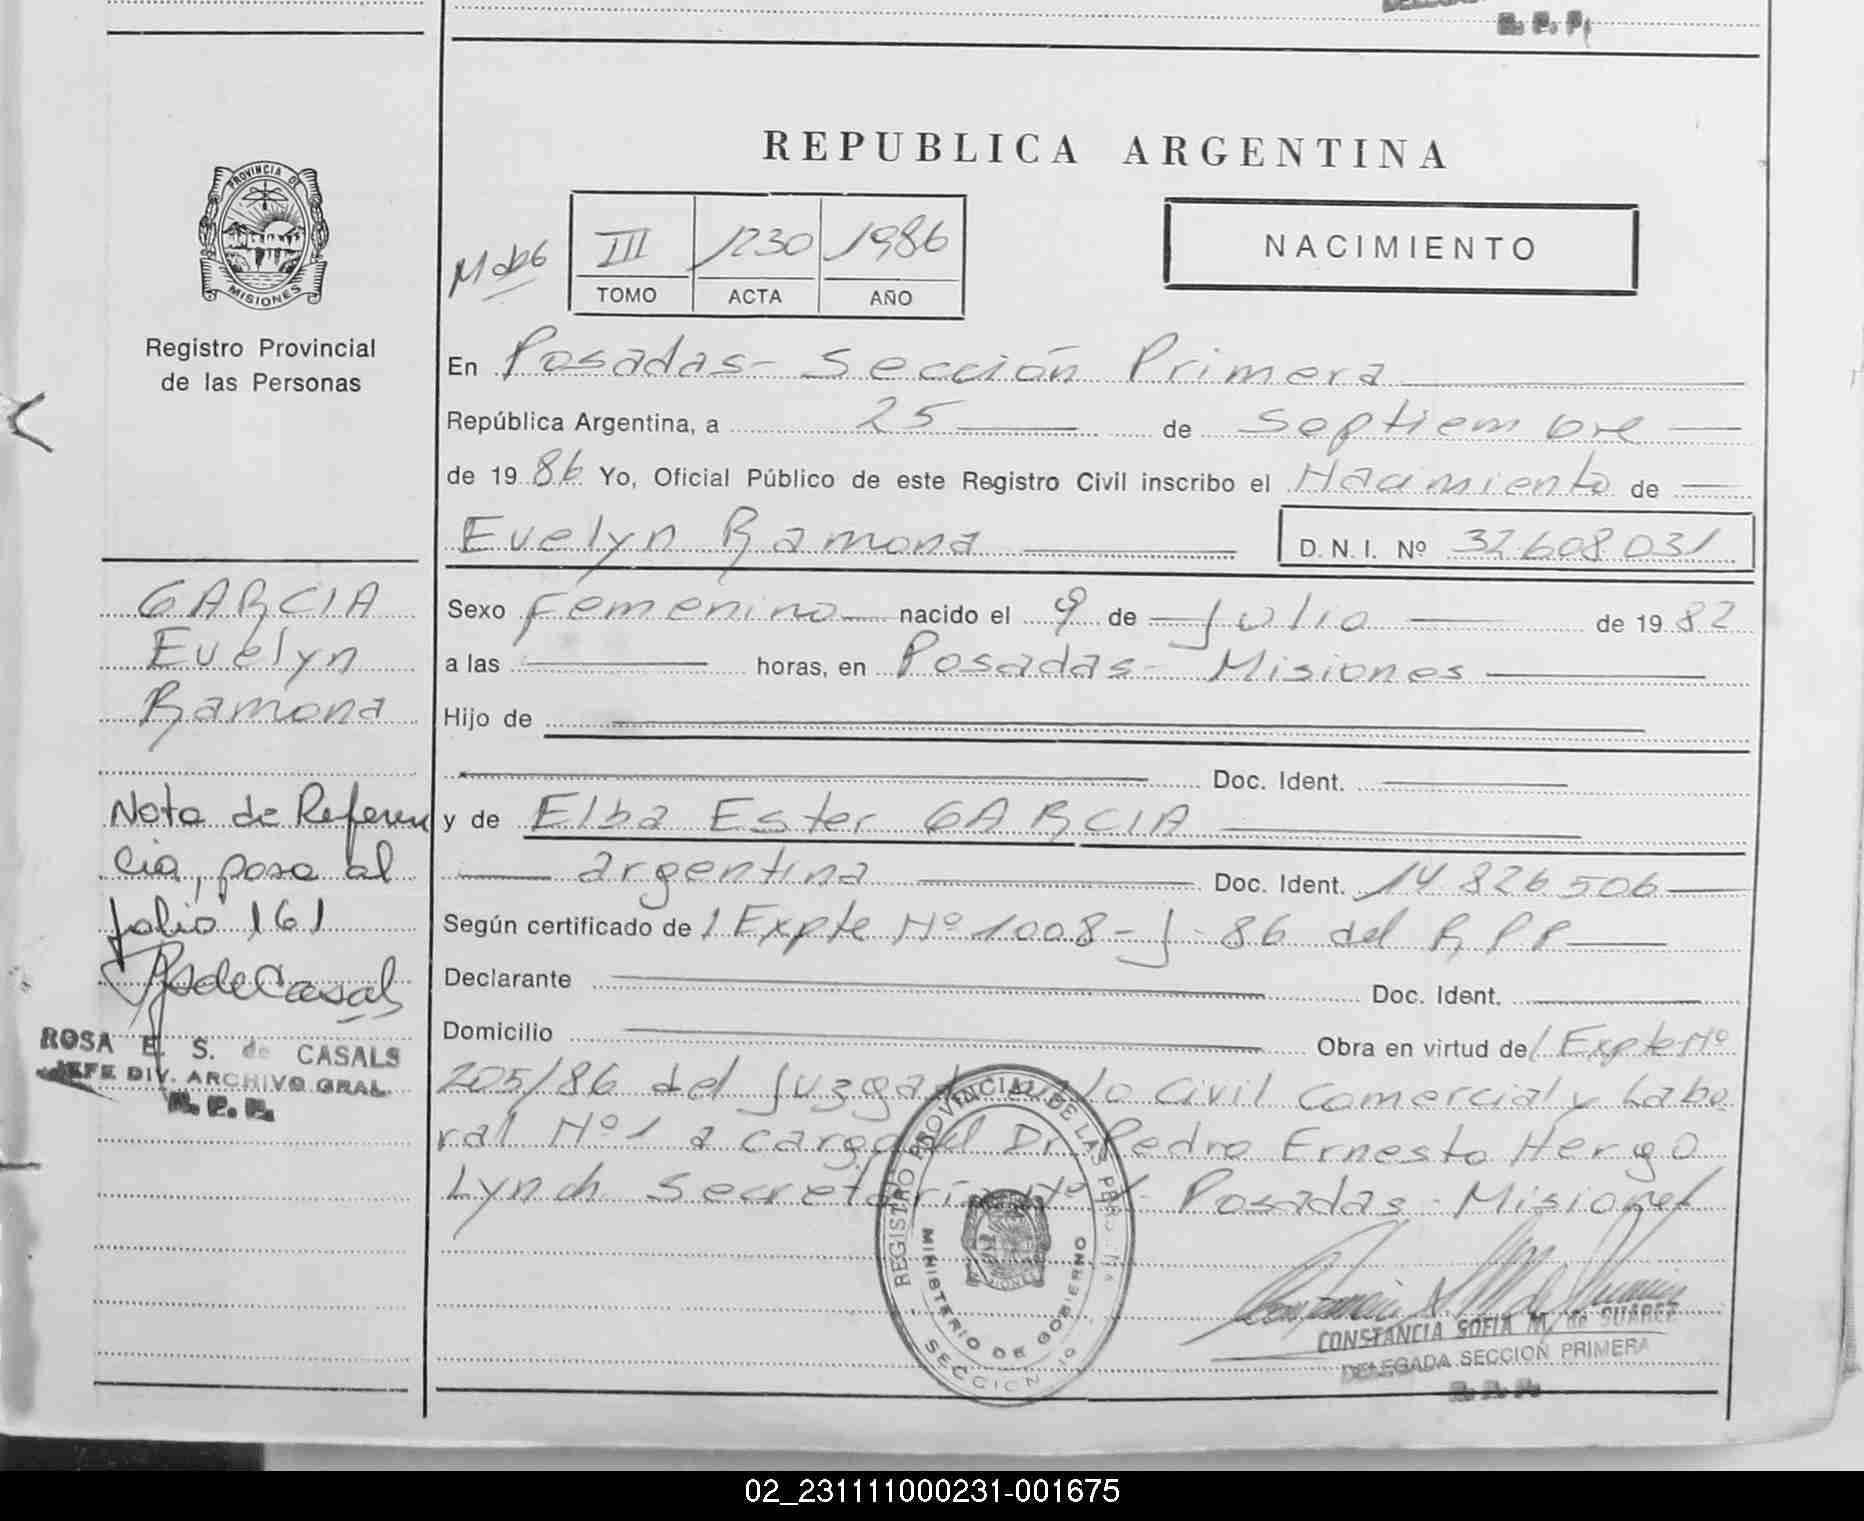 R. P. P.
REPUBLICA ARGENTINA
PROVINCIA DE
MISIONES
Registro Provincial
de las Personas
III 1230 1986
TOMO ACTA AÑO
NACIMIENTO
En Posadas - Sección Primera
República Argentina, a 25 de Septiembre
de 1986 Yo, Oficial Público de este Registro Civil inscribo el Nacimiento de
Evelyn Ramona D. N. I. Nº 32608031
GARCIA
Evelyn
Ramona
Sexo Femenino nacido el 9 de Julio de 1982
a las horas, en Posadas - Misiones
Hijo de
Doc. Ident.
y de Elba Ester GARCIA
argentina Doc. Ident. 14826506
Según certificado de / Expte Nº 1008-J-86 del R P P
Declarante Doc. Ident.
Domicilio Obra en virtud de / Expte Nº
205/86 del Juzgado lo Civil Comercial y Labo
ral Nº 1 a cargo del Dr. Pedro Ernesto Hergo
Lynch Secretaría Nº 1 - Posadas - Misiones
Nota de Referen
cia, pasa al
folio 161
RSdeCasals
ROSA E. S. de CASALS
JEFE DIV. ARCHIVO GRAL
R. P. P.
REGISTRO PROVINCIAL DE LAS PERSONAS
MINISTERIO DE GOBIERNO
SECCION 1º
MISIONES
CONSTANCIA SOFIA M. de SUAREZ
DELEGADA SECCION PRIMERA
R. P. P.
02_231111000231-001675